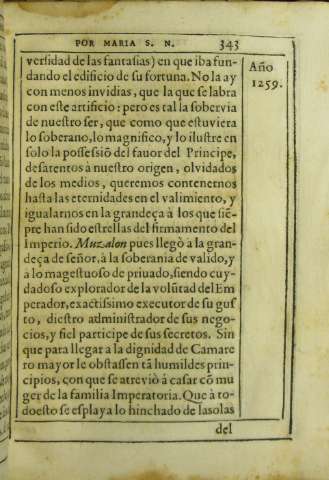 POR MARIA S. N. 343
Año
1259.
versidad de las fantasias) en que iba fun-
dando el edificio de su fortuna. No la ay
con menos invidias, que la que se labra
con este artificio: pero es tal la sobervia
de nuestro ser, que como que estuviera
lo soberano, lo magnifico, y lo ilustre en
solo la possessiõ del fauor del Principe,
desatentos à nuestro origen, olvidados
de los medios, queremos contenernos
hasta las eternidades en el valimiento, y
igualarnos en la grandeça à los que siẽ-
pre han sido estrellas del firmamento del
Imperio. Muzalon pues llegò à la gran-
deça de señor, à la soberania de valido, y
à lo magestuoso de priuado, siendo cuy-
dadoso explorador de la volũtad del Em
perador, exactissimo executor de su gus
to, diestro administrador de sus nego-
cios, y fiel participe de sus secretos. Sin
que para llegar a la dignidad de Camare
ro mayor le obstassen tã humildes prin-
cipios, con que se atreviò à casar cõ mu
ger de la familia Imperatoria. Que à to-
do esto se esplaya lo hinchado de las olas
del